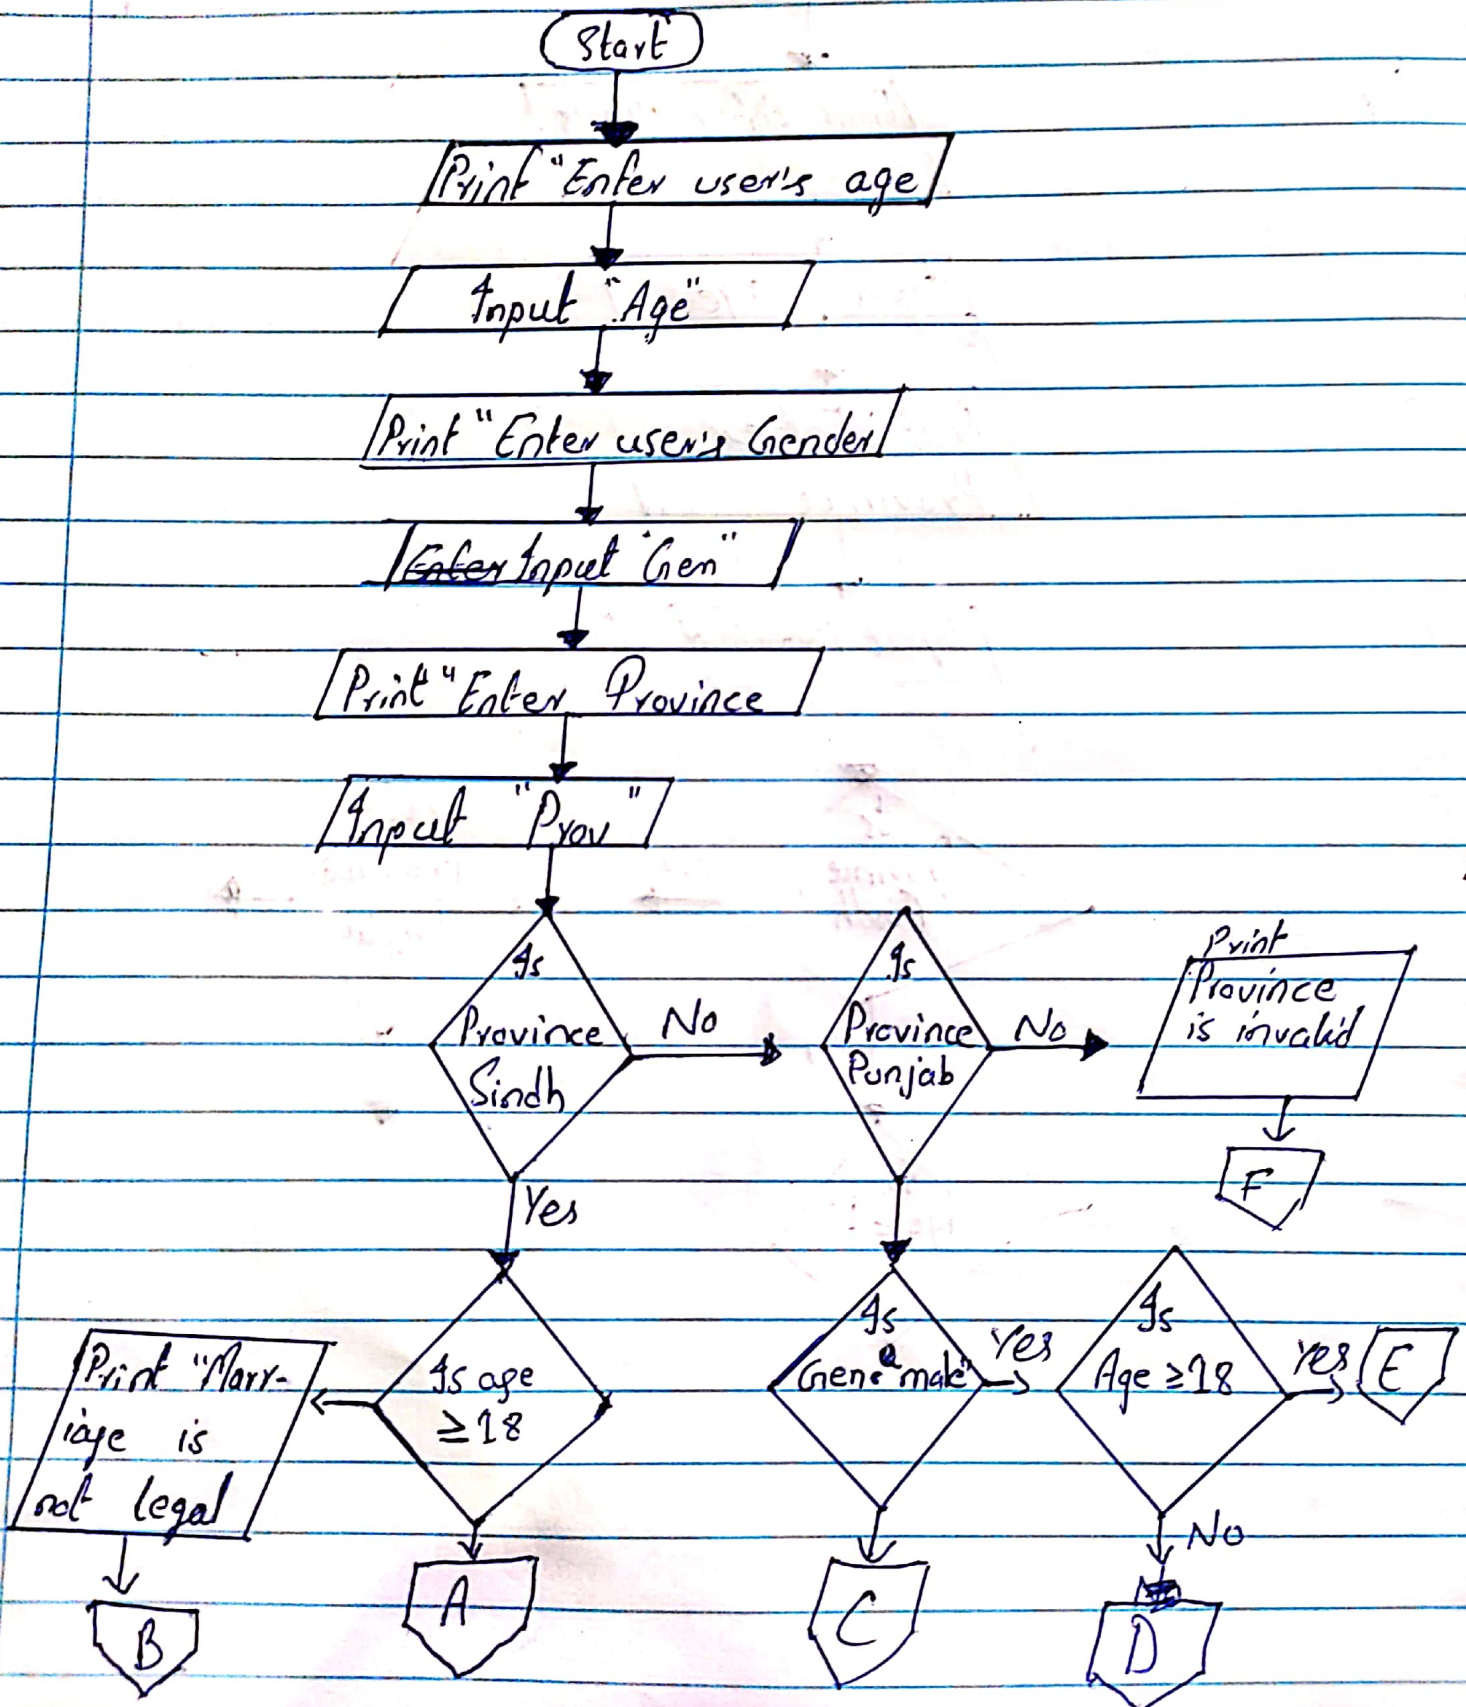 Start
Print "Enter user's age
Input "Age"
Print "Enter user's Gender
Enter Input "Gen"
Print "Enter Province
Input "Prov"
Is
Province
Sindh
No
Is
Province
Punjab
No
Print
Province
is invalid
F
Yes
Print "Marr-
iage is
not legal
B
Is age
≥18
A
Is
Gen= "male"
Yes
C
Is
Age ≥18
Yes
E
No
D